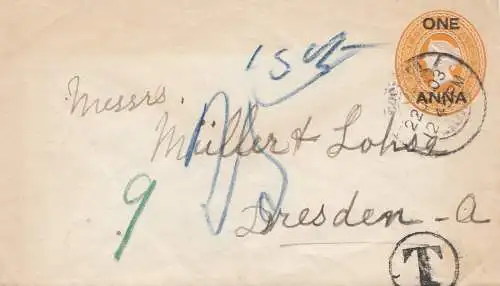 ONE
ANNA
15 cts
Messrs.
Müller & Lohse
9
Dresden - A
T